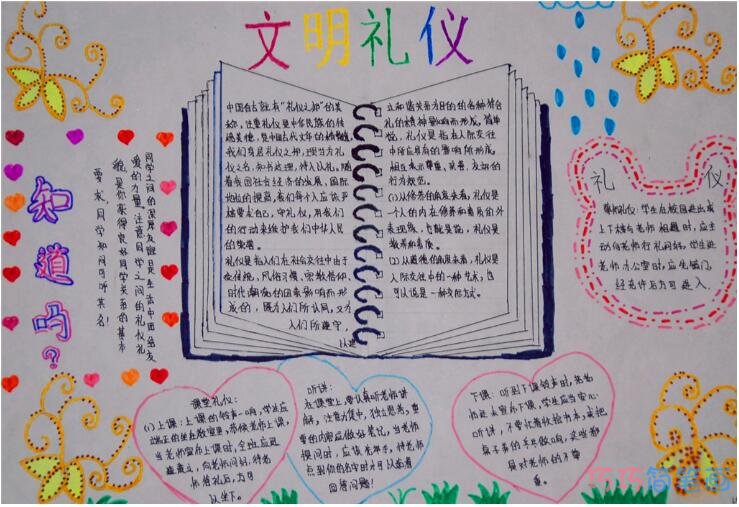 文明礼仪
中国自古就有“礼仪之邦”的美
称，注重礼仪是中华民族的传
统美德，是中国古代文年的精髓
我们身居礼仪之邦，理当为礼
仪之名，知书达理，待人以礼。随
着我国社会经济的发展，国际
地位的提高，我们每个人应该严
格要求自己，守礼仪，用我们
的行动来维护我们中华人民
的集誉。
礼仪是指人们在社会交往中由于
受传统，风俗习惯、宗教信仰
时代潮流的因素影响而形
成的，既为人们所认同，又为
人们所遵守，
以建
立和谐关系为目的的各种符合
礼的精神要响而形成。简单
说，礼仪是指在人际交往
中所应具有的影响所形成。
相互表示尊重、亲善、友好的
行为规范。
(1)从修养的角度来看，礼仪是
一个人的内在修养和素质的外
表现抚，也就是说，礼仪是
教养和素质。
(2)从道德的角度来看，礼仪是
人际交往中的一种艺术，也
可以说是一种交际方式。
知道吗？
同学之间的深厚友谊是生活中团结友
爱的力量。注意同学之间的礼仪礼
貌，是你获得良好同学关系的基本
要求。同学知间可听其名！
礼 仪
尊师礼仪：学生在校园进出或
上下楼与老师相遇时，应主
动向老师行礼问好。学生进
老师办公室时，应先敲门，
经允许后方可进入。
课堂礼仪：
(1)上课：上课的铃声一响，学生应
端正的坐在教室里，恭候老师上课，
当老师宣布上课时，全班应迅
速肃立，向老师问好，待老
师答礼后，方可
以坐下。
听讲：
在课堂上，要认真听老师讲
解，注意力集中，独立思考，重
要的内容应做好笔记。当老师
提问时，应该先举手，待老师
点到你的名字时才可以站着
回答问题！
下课：听到下课铃声时，老若
师还未宣布下课，学生应当安心
听讲，不要忙着收拾书本，或把
桌子弄的乒乓做响，这些都
是对老师的不尊
重。
巧巧简笔画